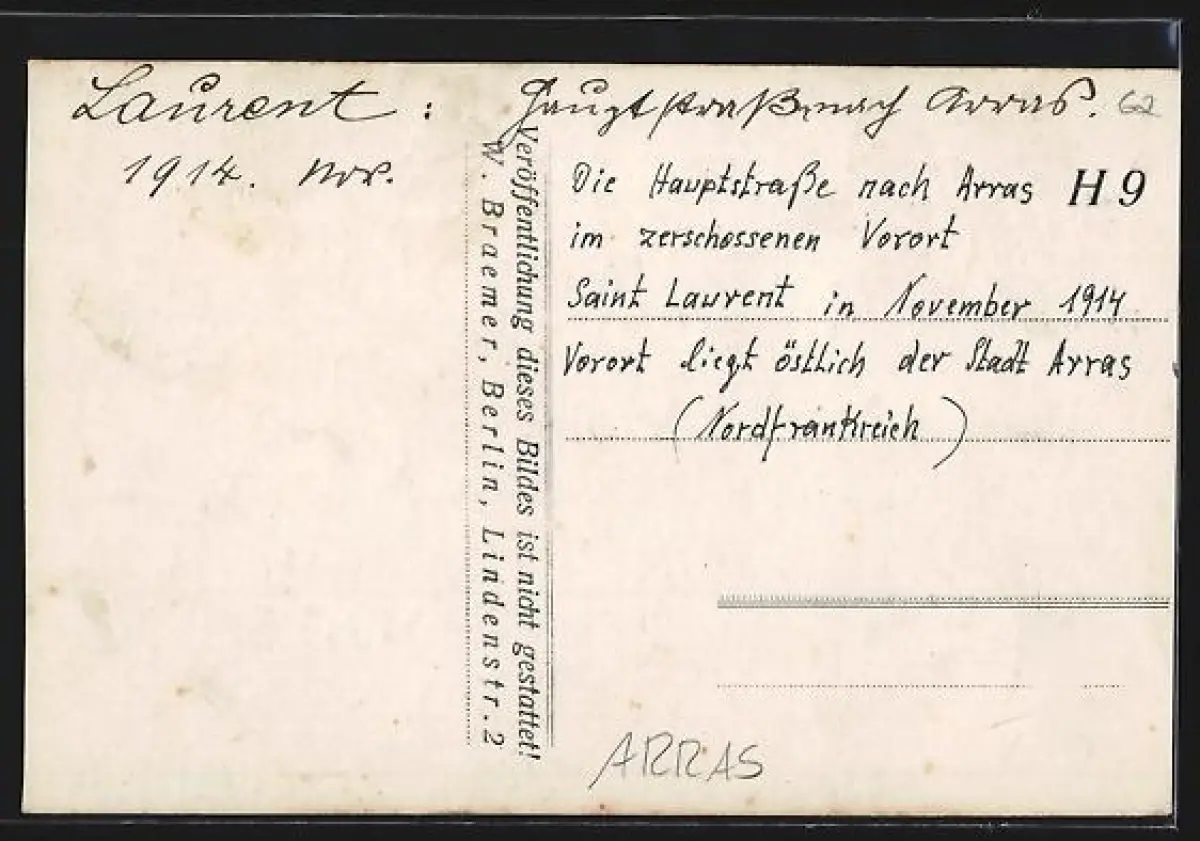 Laurent : Hauptstraße nach Arras. 62
1914. Nov.
Die Hauptstraße nach Arras H 9
im zerschossenen Vorort
Saint Laurent in November 1914
Vorort liegt östlich der Stadt Arras
(Nordfrankreich)
Veröffentlichung dieses Bildes ist nicht gestattet!
W. Braemer, Berlin, Lindenstr. 2
ARRAS